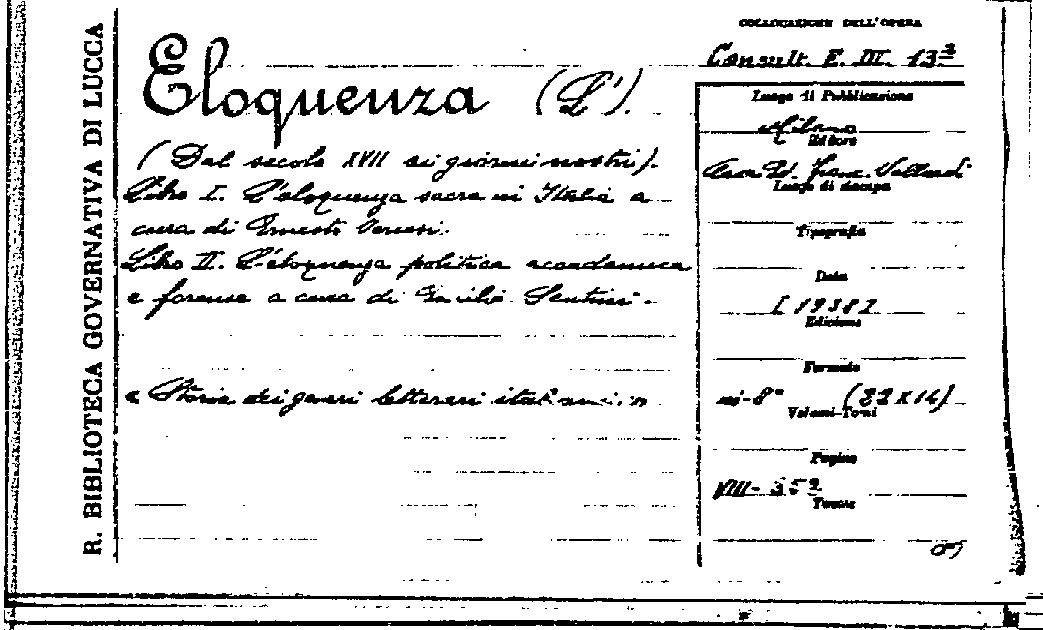 R. BIBLIOTECA GOVERNATIVA DI LUCCA
Eloquenza (L').
(Dal secolo XVII ai giorni nostri).
Libro I. L'eloquenza sacra in Italia a
cura di Ernesto
Libro II. L'eloquenza politica accademica
e forense a cura di
« Storia dei generi letterari italiani »
COLLOCAZIONE DELL'OPERA
Consult. E. III. 13
Luogo di Pubblicazione
Milano
Editore
Casa Ed. Franc. Vallardi
Luogo di stampa
Tipografia
Data
[1938]
Edizione
Formato
in-8° (22X14)
Volumi-Tomi
Pagine
VIII-352
Tavole